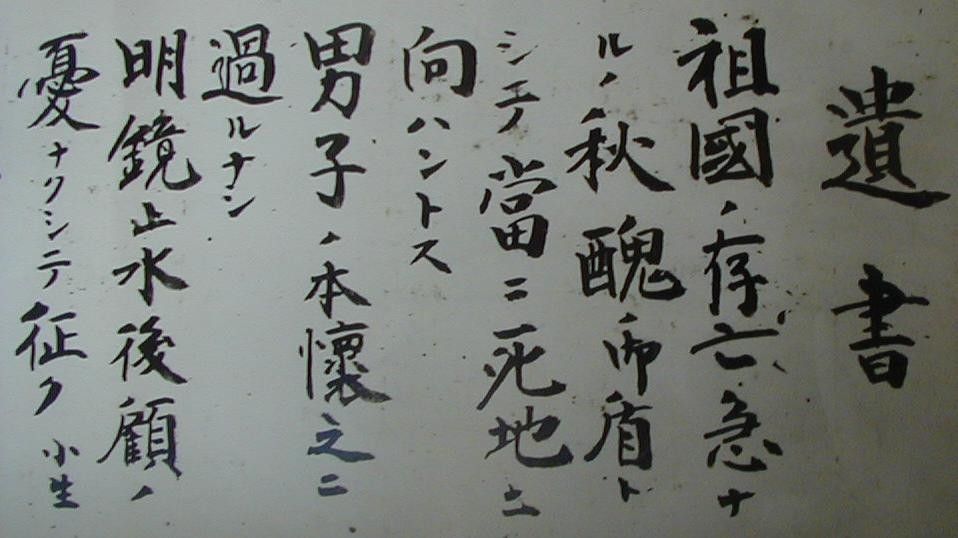 遺書
祖國ノ存亡急ナ
ルノ秋醜御盾ト
シテ當ニ死地ニ
向ハントス
男子ノ本懷之ニ
過ルナシ
明鏡止水後顧ノ
憂ナクシテ征ク 小生